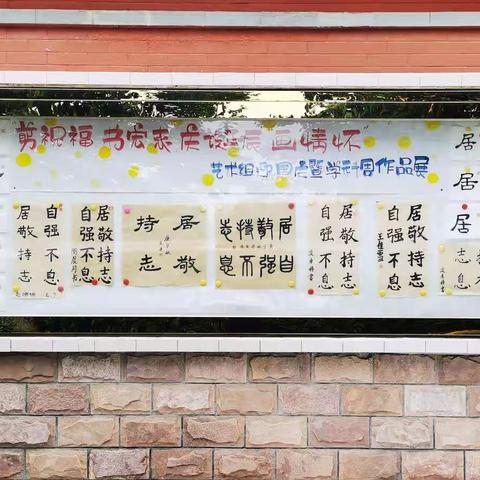 剪祝福 书宏志 庆诞辰 画情怀"
艺术组迎国庆暨学科周作品展
自强不息
居敬持志
居敬持志
自强不息
居敬
持志
居敬持志
自强不息
居敬持志
自强不息
居敬持志
自强不息
居居居
志息